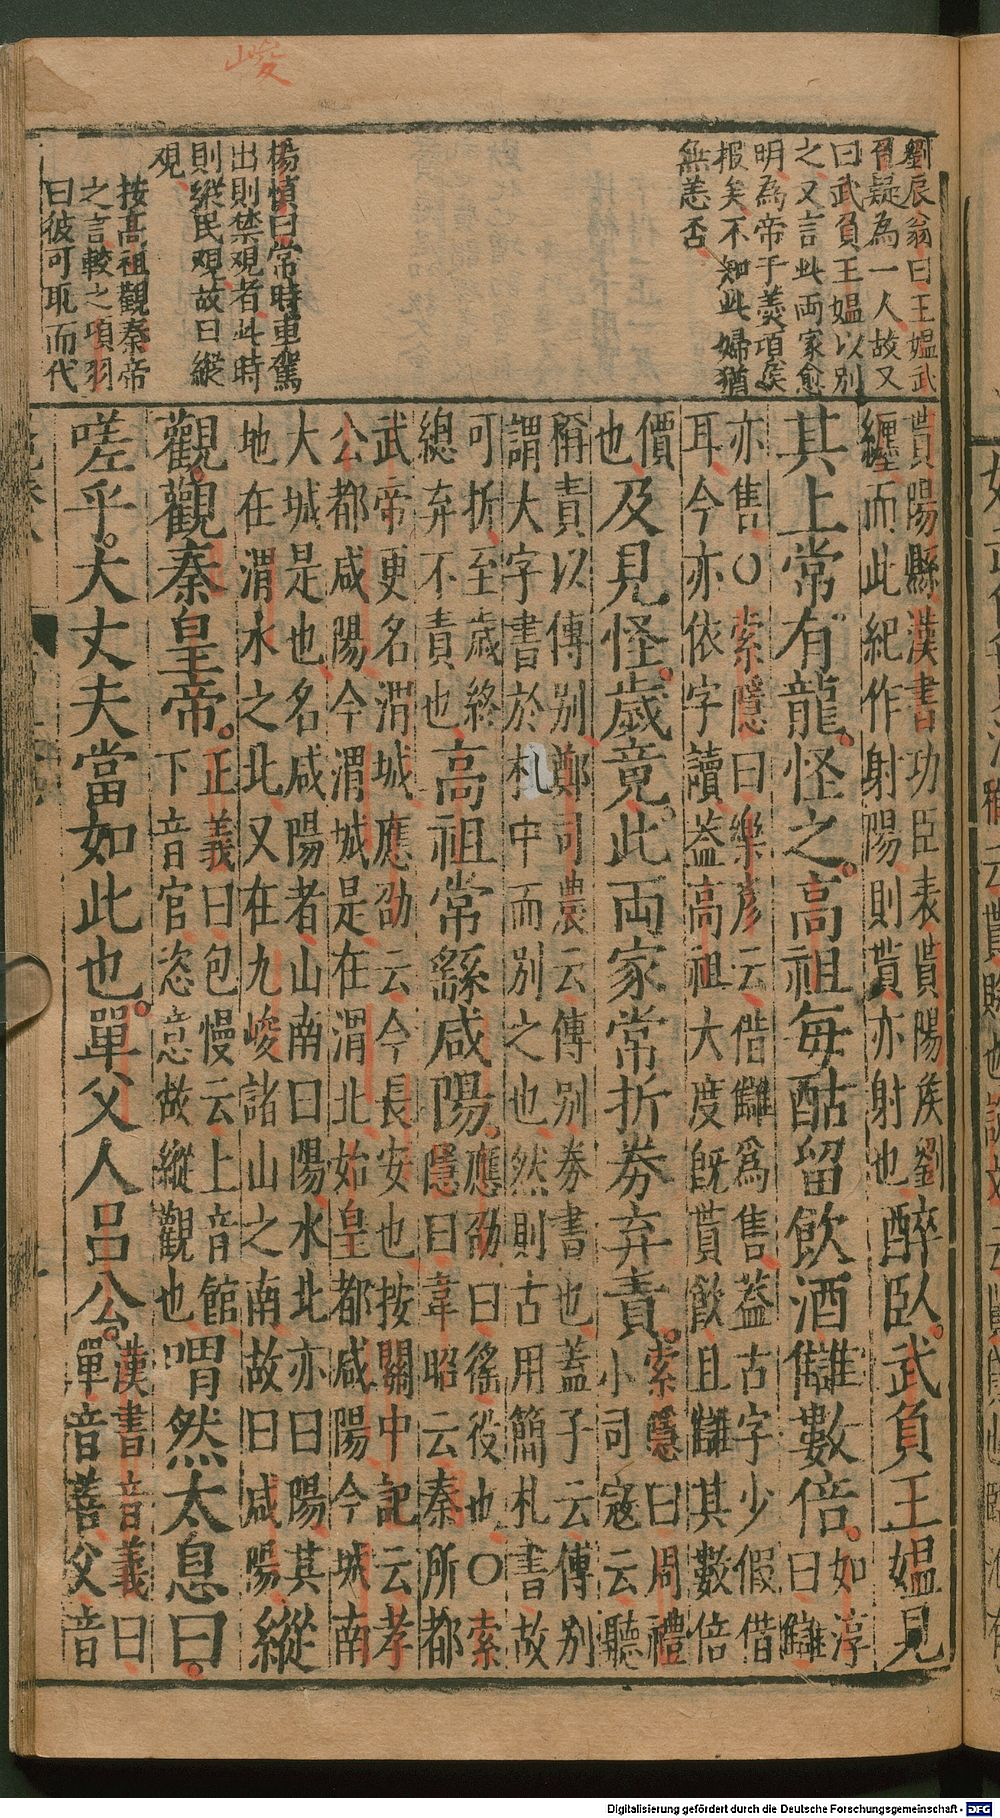 峻
劉辰翁曰王媼武
負疑為一人故又
曰武負王媼以別
之又言此両家愈
明為帝于羙項侯
报矣不知此婦猶
無恙否
楊慎曰常時車駕
出則禁观者此時
則縱民观故曰縱
观
按高祖觀秦帝
之言較之項羽
曰彼可取而代
貰陽縣漢書功臣表貰陽侯劉
纒而此紀作射陽則貰亦射也
醉臥武負王媼見
其上常有龍怪之高祖每酤留飲酒讎數倍
如淳
曰讎
亦售○索隱曰樂彥云借讎爲售蓋古字少假借
耳今亦依字讀蓋高祖大度既貰飲且讎其數倍
價
也
及見怪歲竟此両家常折券弃責
索隱曰周禮
小司寇云聽
稱責以傅别鄭司農云傅别券書也蓋子云傅别
謂大字書於札中而別之也然則古用簡札書故
可折至歲終
總弃不責也
高祖常繇咸陽
應劭曰徭役也○索
隱曰韋昭云秦所都
武帝更名渭城應劭云今長安也按關中記云孝
公都咸陽今渭城是在渭北始皇都咸陽今城南
大城是也名咸陽者山南曰陽水北亦曰陽其
地在渭水之北又在九峻諸山之南故曰咸陽
縱
觀觀秦皇帝
正義曰包慢云上音館
下音官恣意故縱觀也
喟然太息曰
嗟乎大丈夫當如此也單父人呂公
漢書音義曰
單音善父音
Digitalisierung gefördert durch die Deutsche Forschungsgemeinschaft - DFG